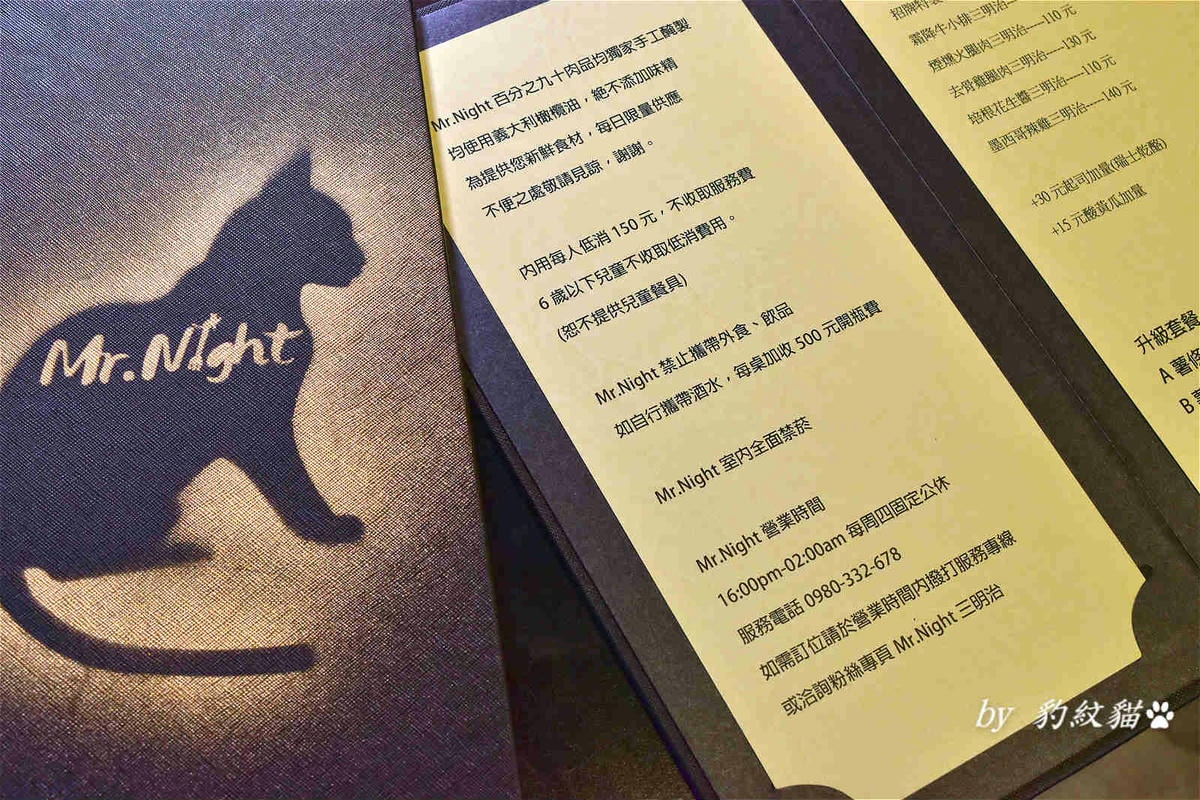 Mr.Night
Mr.Night 百分之九十肉品均獨家手工醃製
均使用義大利橄欖油，絕不添加味精
為提供您新鮮食材，每日限量供應
不便之處敬請見諒，謝謝。
內用每人低消 150 元，不收取服務費
6 歲以下兒童不收取低消費用。
(恕不提供兒童餐具)
Mr.Night 禁止攜帶外食、飲品
如自行攜帶酒水，每桌加收 500 元開瓶費
Mr.Night 室內全面禁菸
Mr.Night 營業時間
16:00pm-02:00am 每周四固定公休
服務電話 0980-332-678
如需訂位請於營業時間內撥打服務專線
或洽詢粉絲專頁 Mr.Night 三明治
招牌特
霜降牛小排三明治
煙燻火腿肉三明治-----110 元
去骨雞腿肉三明治-----130 元
培根花生醬三明治-----110 元
墨西哥辣雞三明治-----140 元
+30 元起司加量(瑞士乾酪)
+15 元酸黃瓜加量
升級套餐
A 薯條
B
by 豹紋貓